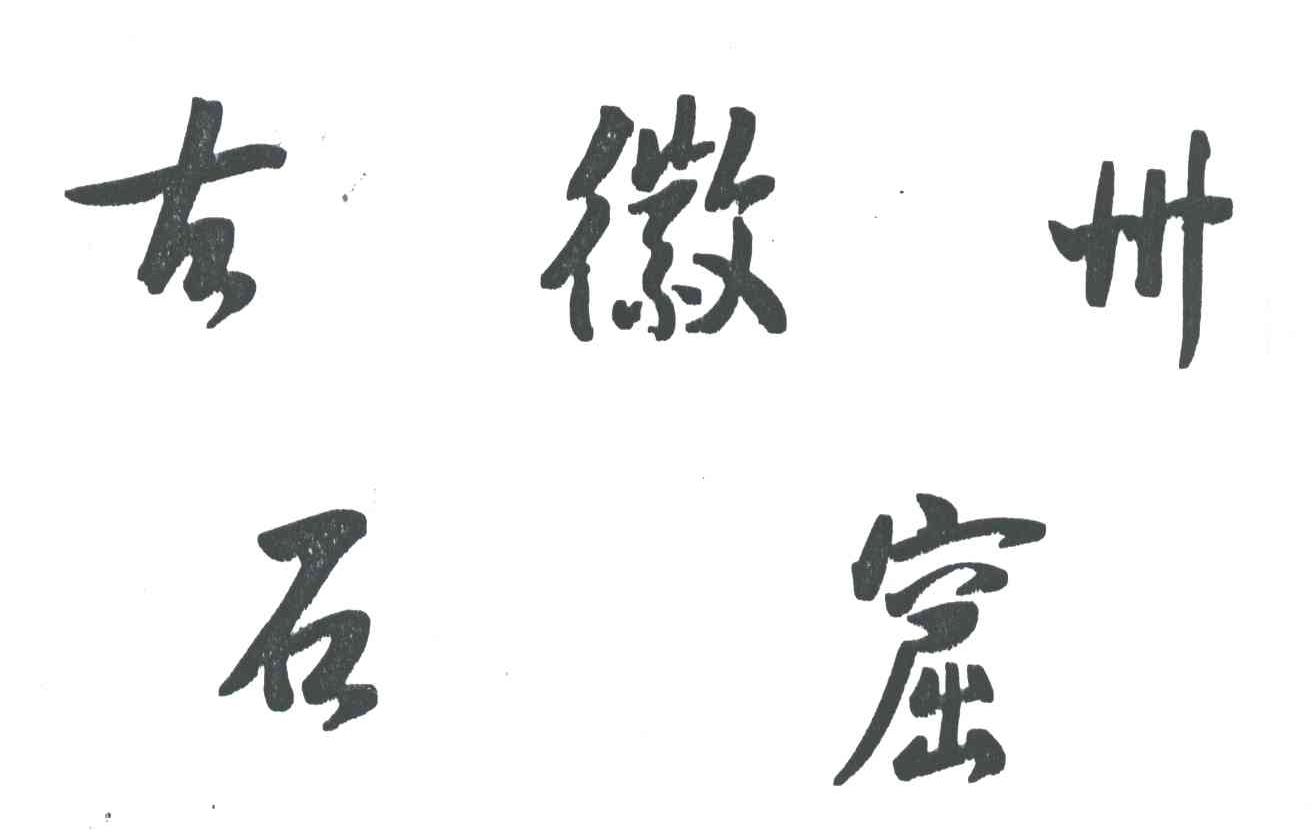 古徽州
石窟